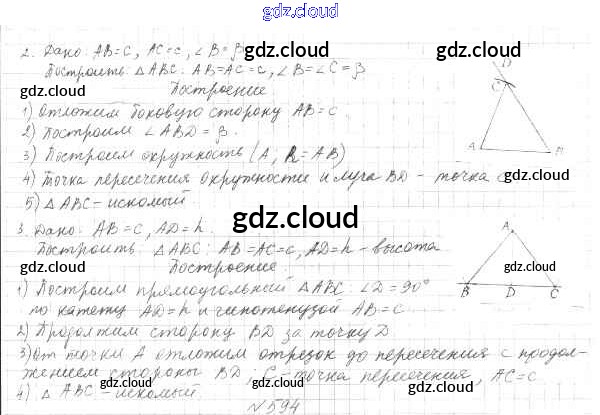 gdz.cloud
2. Дано: AB=c, AC=c, ∠B=β
Построить: △ABC: AB=AC=c, ∠B=∠C=β
Построение
1) Отложим боковую сторону AB=c.
2) Построим ∠ABD=β.
3) Построим окружность (A, R=AB)
4) Точка пересечения окружности и луча BD - точка C
5) △ABC - искомый
3. Дано: AB=c, AD=h.
Построить: △ABC: AB=AC=c, AD=h - высота
Построение
1) Построим прямоугольный △ABC: ∠D=90°
по катету AD=h и гипотенузой AB=c
2) Продолжим сторону BD за точку D
3) От точки A отложим отрезок до пересечения с продол-
жением стороны BD; C - точка пересечения, AC=c.
4) △ABC - искомый.
№594
D
C
A
B
A
B D C
gdz.cloud
gdz.cloud
gdz.cloud
gdz.cloud
gdz.cloud
gdz.cloud
gdz.cloud
gdz.cloud
gdz.cloud
gdz.cloud
gdz.cloud